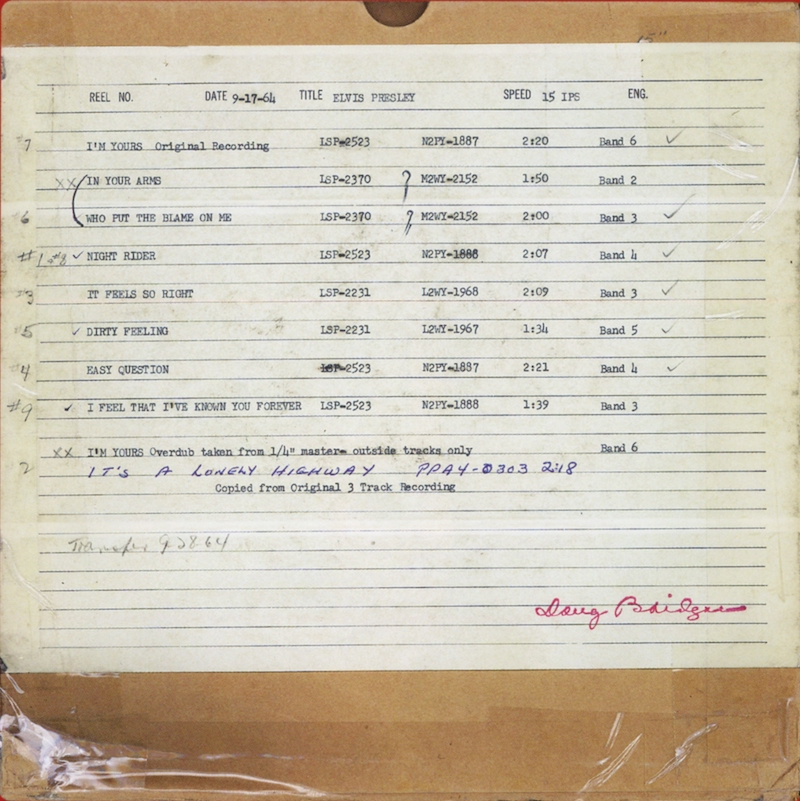 15"
REEL NO. DATE 9-17-64 TITLE ELVIS PRESLEY SPEED 15 IPS ENG.
7 I'M YOURS Original Recording LSP-2523 N2PY-1887 2:20 Band 6 ✓
XX IN YOUR ARMS LSP-2370 ? M2WY-2152 1:50 Band 2
6 WHO PUT THE BLAME ON ME LSP-2370 ? M2WY-2152 2:00 Band 3 ✓
#1 #8 ✓ NIGHT RIDER LSP-2523 N2PY-1888 2:07 Band 4 ✓
#3 IT FEELS SO RIGHT LSP-2231 L2WY-1968 2:09 Band 3 ✓
#5 ✓ DIRTY FEELING LSP-2231 L2WY-1967 1:34 Band 5 ✓
#4 EASY QUESTION LSP-2523 N2PY-1887 2:21 Band 4 ✓
#9 ✓ I FEEL THAT I'VE KNOWN YOU FOREVER LSP-2523 N2PY-1888 1:39 Band 3
XX I'M YOURS Overdub taken from 1/4" master- outside tracks only Band 6
2 IT'S A LONELY HIGHWAY PPA4-0303 2:18
Copied from Original 3 Track Recording
Transfer 92864
Doug Bridges